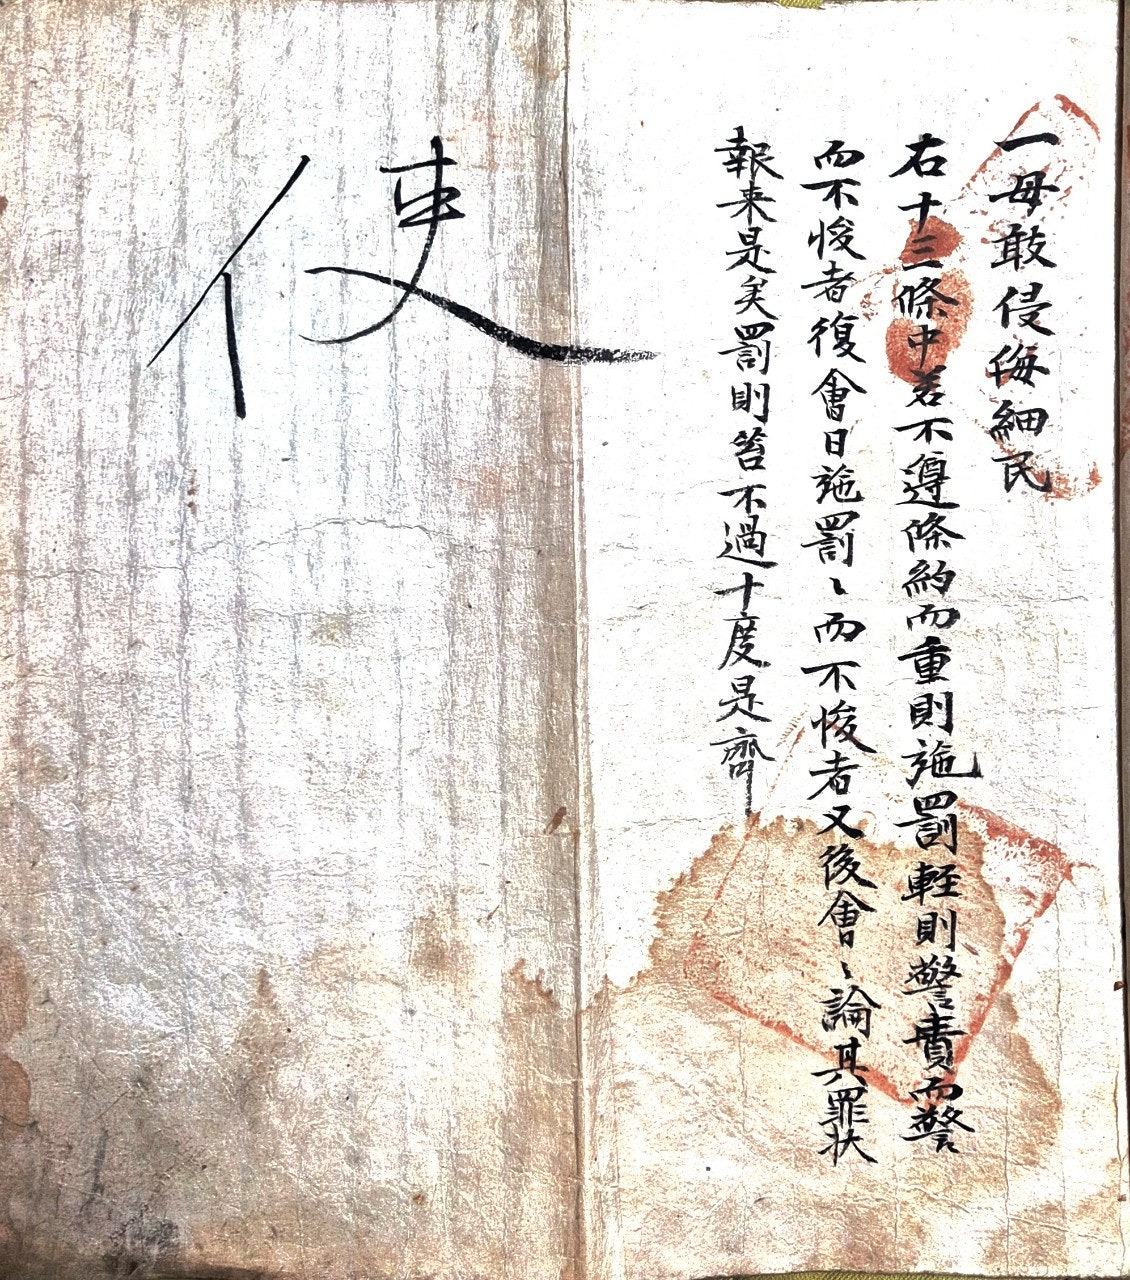 一毋敢侵侮細民
右十三條中若不遵條約而重則施罰輕則警責而警
而不悛者復會日施罰〻而不悛者又後會〻論其罪狀
報来是矣罰則笞不過十度是齊
使